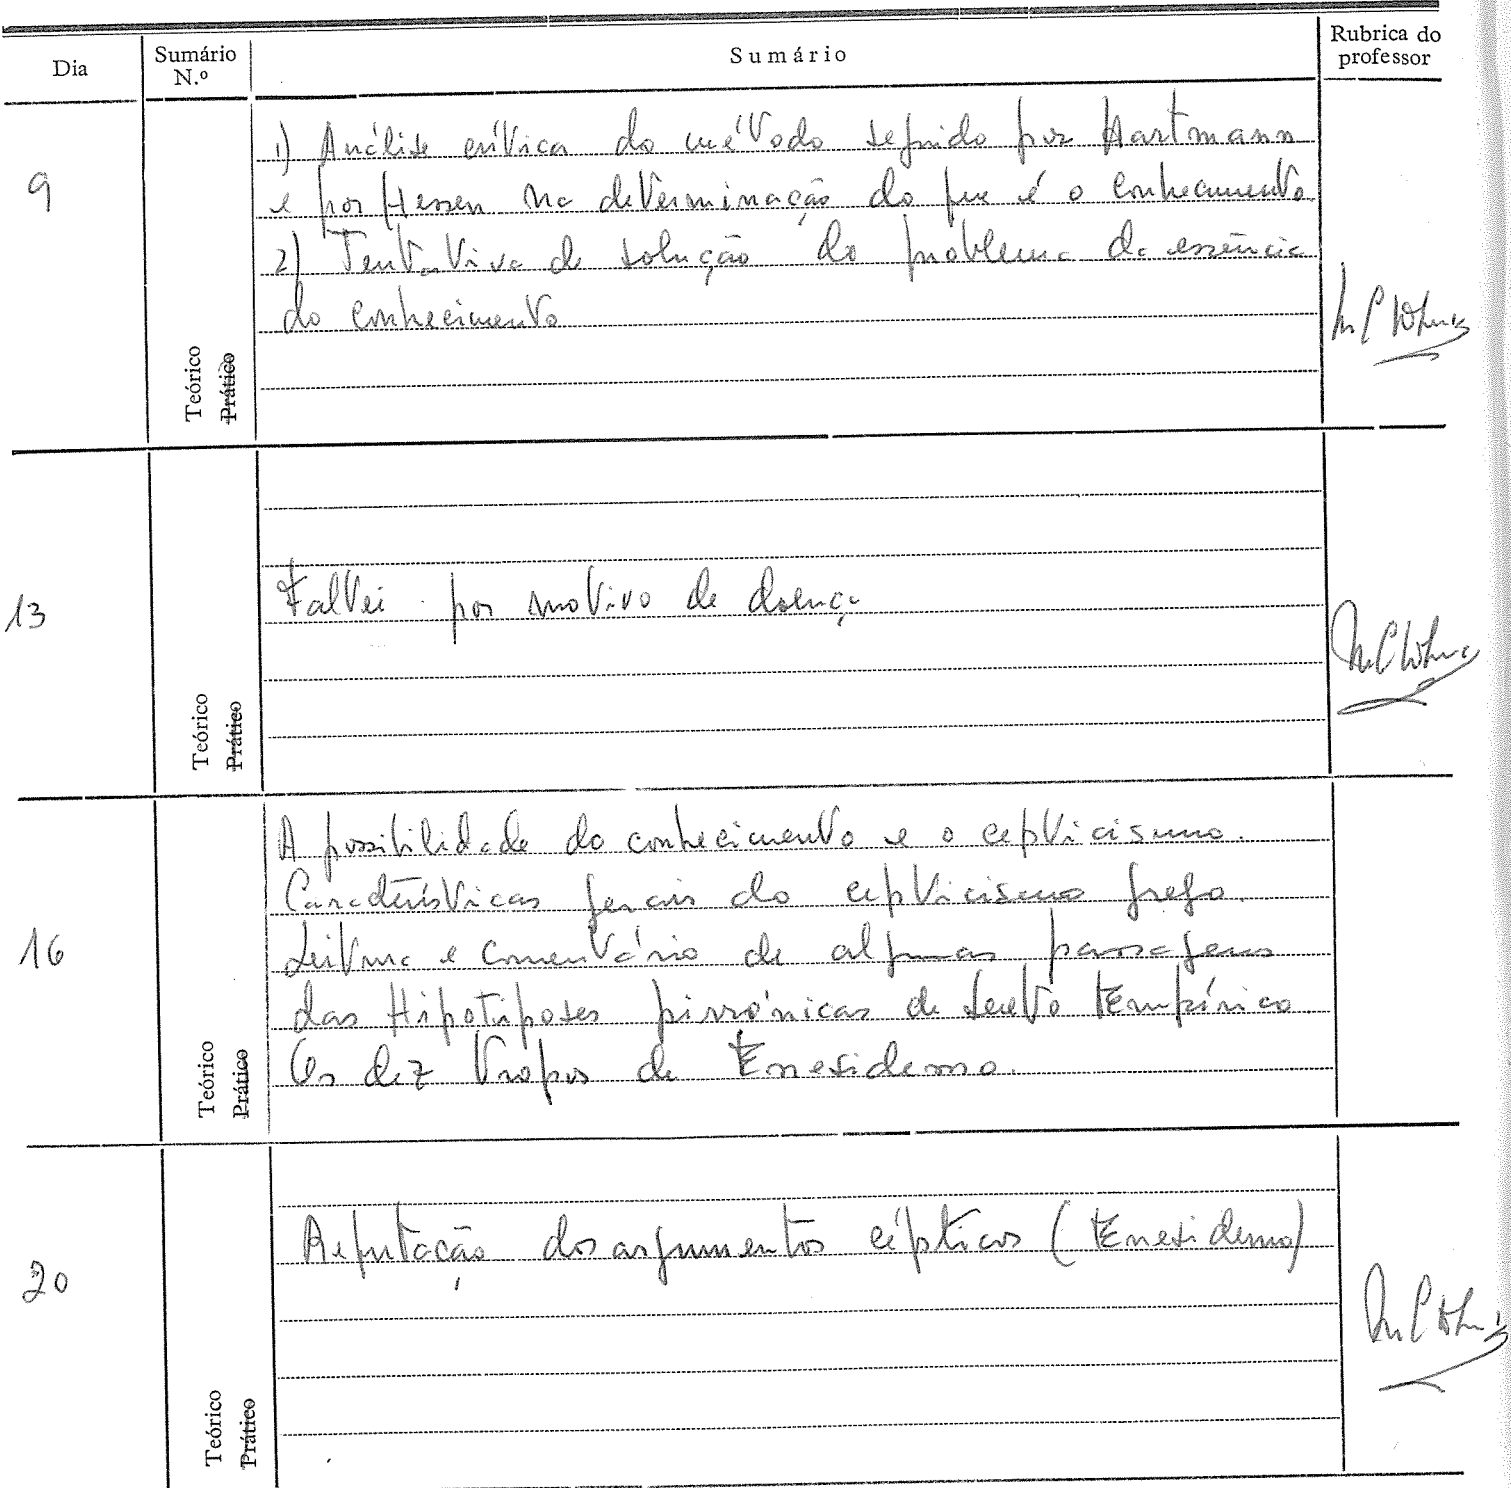 Dia
Sumário N.º
Sumário
Rubrica do professor
9
1) Análise crítica do método seguido por Hartmann
e por Hessen na determinação do que é o conhecimento
2) Tentativa de solução do problema da essência
do conhecimento
Teórico
Prático
13
Faltei por motivo de doença
Teórico
Prático
16
A possibilidade do conhecimento e o cepticismo.
Características gerais do cepticismo grego.
Leitura e comentário de algumas passagens
das Hipotiposes pirrónicas de Sexto Empírico.
Os dez tropos de Enesidemo.
Teórico
Prático
20
Refutação dos argumentos cépticos (Enesidemo)
Teórico
Prático